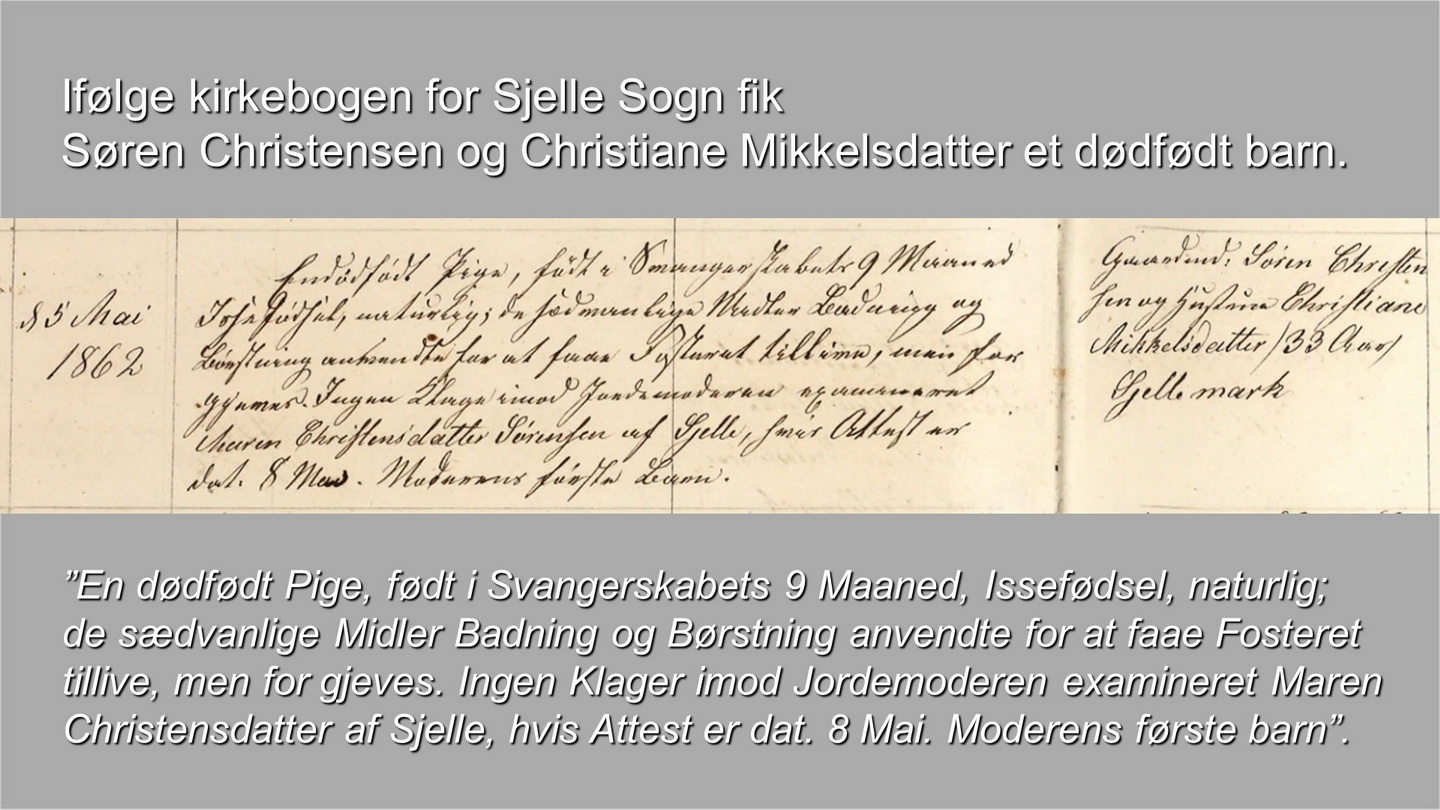 Ifølge kirkebogen for Sjelle Sogn fik
Søren Christensen og Christiane Mikkelsdatter et dødfødt barn.
d 5 Mai
1862
En dødfödt Pige, födt i Svangerskabets 9 Maaned
Isse Födsel, naturlig; de sædvanlige Midler Badning og
Börstning anvendte for at faae Fosteret tillive, men for
gjeves. Ingen Klage imod Jordemoderen examineret
Maren Christensdatter Sörensen af Sjelle, hvis Attest er
dat. 8 Mai. Moderens förste Barn.
Gaardmd: Sören Christen
sen og Hustrue Christiane
Mikkelsdatter /33 Aar/
Sjelle mark
”En dødfødt Pige, født i Svangerskabets 9 Maaned, Issefødsel, naturlig;
de sædvanlige Midler Badning og Børstning anvendte for at faae Fosteret
tillive, men for gjeves. Ingen Klager imod Jordemoderen examineret Maren
Christensdatter af Sjelle, hvis Attest er dat. 8 Mai. Moderens første barn”.